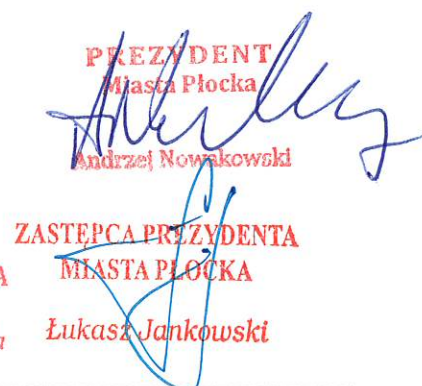 PREZYDENT
Miasta Płocka
Andrzej Nowakowski
ZASTĘPCA PREZYDENTA
MIASTA PŁOCKA
Łukasz Jankowski